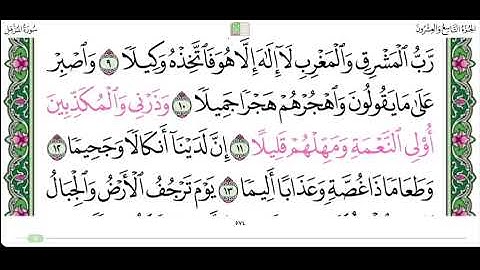 الجزء التاسع والعشرون
سورة المزمل
رَّبُّ الْمَشْرِقِ وَالْمَغْرِبِ لَا إِلَٰهَ إِلَّا هُوَ فَاتَّخِذْهُ وَكِيلًا ٩ وَاصْبِرْ
عَلَىٰ مَا يَقُولُونَ وَاهْجُرْهُمْ هَجْرًا جَمِيلًا ١٠ وَذَرْنِي وَالْمُكَذِّبِينَ
أُولِي النَّعْمَةِ وَمَهِّلْهُمْ قَلِيلًا ١١ إِنَّ لَدَيْنَا أَنكَالًا وَجَحِيمًا ١٢
وَطَعَامًا ذَا غُصَّةٍ وَعَذَابًا أَلِيمًا ١٣ يَوْمَ تَرْجُفُ الْأَرْضُ وَالْجِبَالُ
٥٧٤